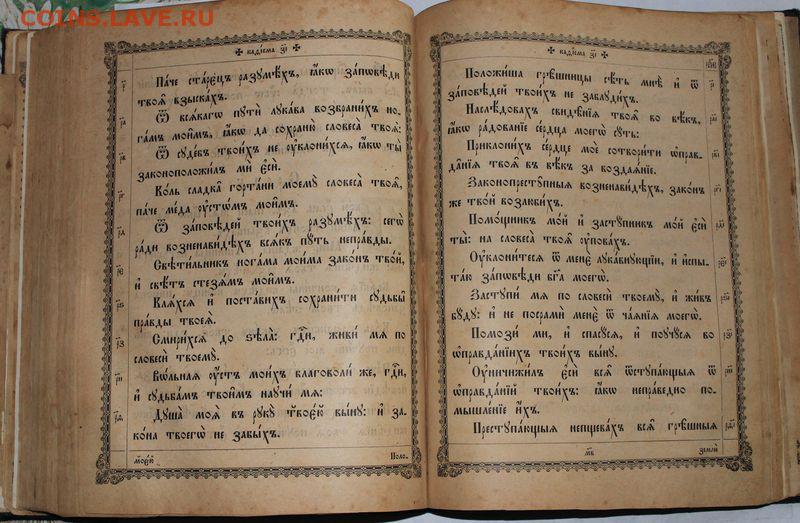 COINS.LAVE.RU
каѳі́сма з҃і
р҃
Па́че ста́рєцъ разꙋмѣ́хъ, ꙗ҆́кѡ за́пѡвѣди
твоѧ̑ взыска́хъ.
р҃а
Ѿ всѧ́кагѡ пꙋтѝ лꙋка́ва возбрани́хъ но-
га́мъ мои̑мъ, ꙗ҆́кѡ да сохраню̀ словеса̀ твоѧ̑:
р҃в
Ѿ сꙋде́бъ твои́хъ не ᲂу҆клони́хсѧ, ꙗ҆́кѡ ты̀
законоположи́лъ мѝ є҆сѝ.
р҃г
Ко́ль сладка̑ горта́ни моемꙋ̀ словеса̀ твоѧ̑,
па́че ме́да ᲂу҆стѡ́мъ мои̑мъ.
р҃д
Ѿ за́повѣдей твои́хъ разꙋмѣ́хъ: сегѡ̀
ра́ди возненави́дѣхъ всѧ́къ пꙋ́ть непра́вды.
р҃є
Свѣти́льникъ нога́ма мои́ма зако́нъ тво́й,
и҆ свѣ́тъ стезѧ́мъ мои̑мъ.
р҃ѕ
Клѧ́хсѧ и҆ поста́вихъ сохрани́ти сꙋдьбы̑
пра́вды твоеѧ̀.
р҃з
Смири́хсѧ до ѕѣла̀: гдⷭ҇и, живи́ мѧ по
словесѝ твоемꙋ̀.
р҃и
Вѡ́льнаѧ ᲂу҆́стъ мои́хъ благоволи́ же, гдⷭ҇и,
и҆ сꙋдьба́мъ твои̑мъ наꙋчи́ мѧ:
р҃ѳ
Дꙋша̀ моѧ̀ въ рꙋкꙋ̀ твоє́ю вы́нꙋ: и҆ за-
ко́на твоегѡ̀ не забы́хъ.
мое́ю
Поло-
каѳі́сма з҃і
р҃і
Положи́ша грѣ̑шницы сѣ́ть мнѣ̀ и҆ ѿ
за́повѣдей твои́хъ не заблꙋди́хъ.
р҃аі
Наслѣ́довахъ свидѣ̑нїѧ твоѧ̑ во вѣ́къ,
ꙗ҆́кѡ ра́дованїе се́рдца моегѡ̀ сꙋ́ть:
р҃ві
Приклони́хъ се́рдце моѐ сотвори́ти ѡ҆прав-
да̑нїѧ твоѧ̑ въ вѣ́къ за воздаѧ́нїе.
р҃гі
Законопрестꙋ́пныѧ возненави́дѣхъ, зако́нъ
же тво́й возлюби́хъ.
р҃ді
Помо́щникъ мо́й и҆ застꙋ́пникъ мо́й є҆сѝ
ты̀: на словеса̀ твоѧ̑ ᲂу҆пова́хъ.
р҃єі
Оу҆клони́тесѧ ѿ менє̀ лꙋка́внꙋющїи, и҆ и҆спы-
та́ю за́пѡвѣди бг҃а моегѡ̀.
р҃ѕі
Застꙋпи́ мѧ по словесѝ твоемꙋ̀, и҆ жи́въ
бꙋ́дꙋ: и҆ не посрамѝ менѐ ѿ ча́ѧнїѧ моегѡ̀.
р҃зі
Помози́ ми, и҆ спасꙋ́сѧ, и҆ поꙋчꙋ́сѧ во
ѡ҆правда́нїихъ твои́хъ вы́нꙋ.
р҃иі
Оу҆ничижи́лъ є҆сѝ всѧ̑ ѿстꙋпа́ющыѧ ѿ
ѡ҆правда́нїй твои́хъ: ꙗ҆́кѡ непра́ведно по-
мышле́нїе и҆́хъ.
р҃ѳі
Престꙋпа́ющыѧ непщева́хъ всѧ̑ грѣ́шныѧ
м҃в
землѝ